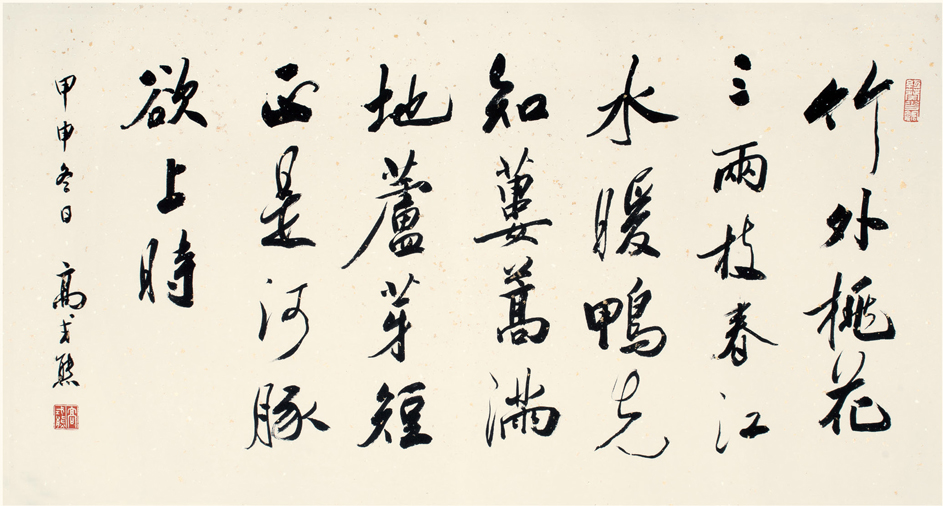 竹外桃花
三兩枝春江
水暖鴨先
知蔞蒿滿
地蘆芽短
正是河豚
欲上時
甲申冬日 高式熊